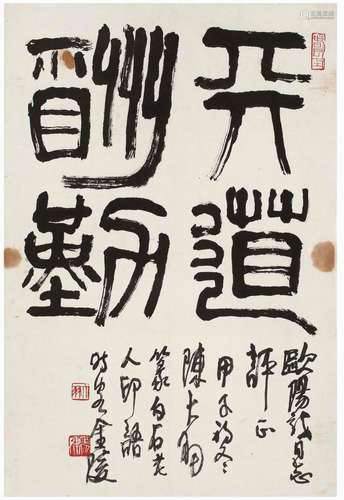 天道
酬勤
歐陽同志
評正
甲子初冬
陳大羽
篆白石老
人印語
時客金陵